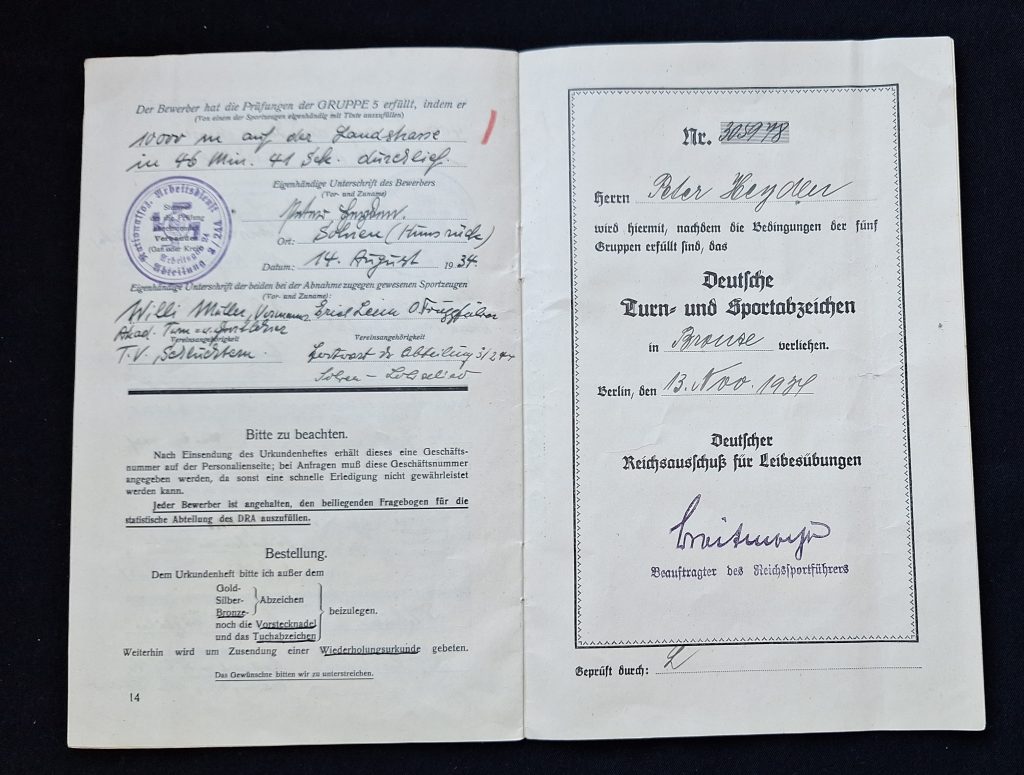 Der Bewerber hat die Prüfungen der GRUPPE 5 erfüllt, indem er
(Von einem der Sportzeugen eigenhändig mit Tinte auszufüllen)
10000 m auf der Landstrasse
in 46 Min. 41 Sek. durchlief.
Eigenhändige Unterschrift des Bewerbers
(Vor- und Zuname)
Nationalsoz. Arbeitsdienst
Abteilung 2/244
Ort: Sohren (Hunsrück)
Datum: 14. August 1934.
Eigenhändige Unterschrift der beiden bei der Abnahme zugegen gewesenen Sportzeugen
(Vor- und Zuname):
Willi Müller, Erich
Akad. Turn- u. Sportlehrer
Vereinsangehörigkeit Vereinsangehörigkeit
T.V. Schlüchtern. Sportwart der Abteilung
Bitte zu beachten.
Nach Einsendung des Urkundenheftes erhält dieses eine Geschäfts-
nummer auf der Personalienseite; bei Anfragen muß diese Geschäftsnummer
angegeben werden, da sonst eine schnelle Erledigung nicht gewährleistet
werden kann.
Jeder Bewerber ist angehalten, den beiliegenden Fragebogen für die
statistische Abteilung des DRA auszufüllen.
Bestellung.
Dem Urkundenheft bitte ich außer dem
Gold-
Silber- Abzeichen
Bronze- beizulegen.
noch die Vorstecknadel
und das Tuchabzeichen
Weiterhin wird um Zusendung einer Wiederholungsurkunde gebeten.
Das Gewünschte bitten wir zu unterstreichen.
14
Nr. 305978
Herrn Peter Heyden
wird hiermit, nachdem die Bedingungen der fünf
Gruppen erfüllt sind, das
Deutsche
Turn- und Sportabzeichen
in Bronse verliehen.
Berlin, den 13. Nov. 1934
Deutscher
Reichsausschuß für Leibesübungen
Breitmeyer
Beauftragter des Reichssportführers
Geprüft durch: L